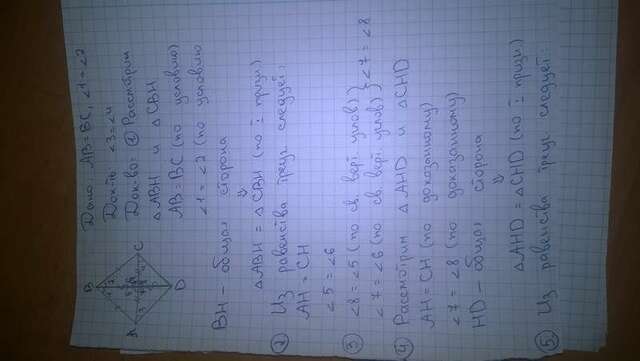 Дано: AB=BC, ∠1=∠2
Док-ть: ∠3=∠4
Док-во: ① Рассмотрим
△ABH и △CBH
AB=BC (по условию)
∠1=∠2 (по условию
BH - общая сторона
⇓
△ABH = △CBH (по I призн.)
② Из равенства треуг. следует:
AH = CH
∠5=∠6
③ ∠8=∠5 (по св. верт. углов) } ∠7=∠8
∠7=∠6 (по св. верт. углов)
④ Рассмотрим △AHD и △CHD
AH=CH (по доказанному)
∠7=∠8 (по доказанному)
HD - общая сторона
⇓
△AHD = △CHD (по I призн.)
⑤ Из равенства треуг. следует:
B
A
C
D